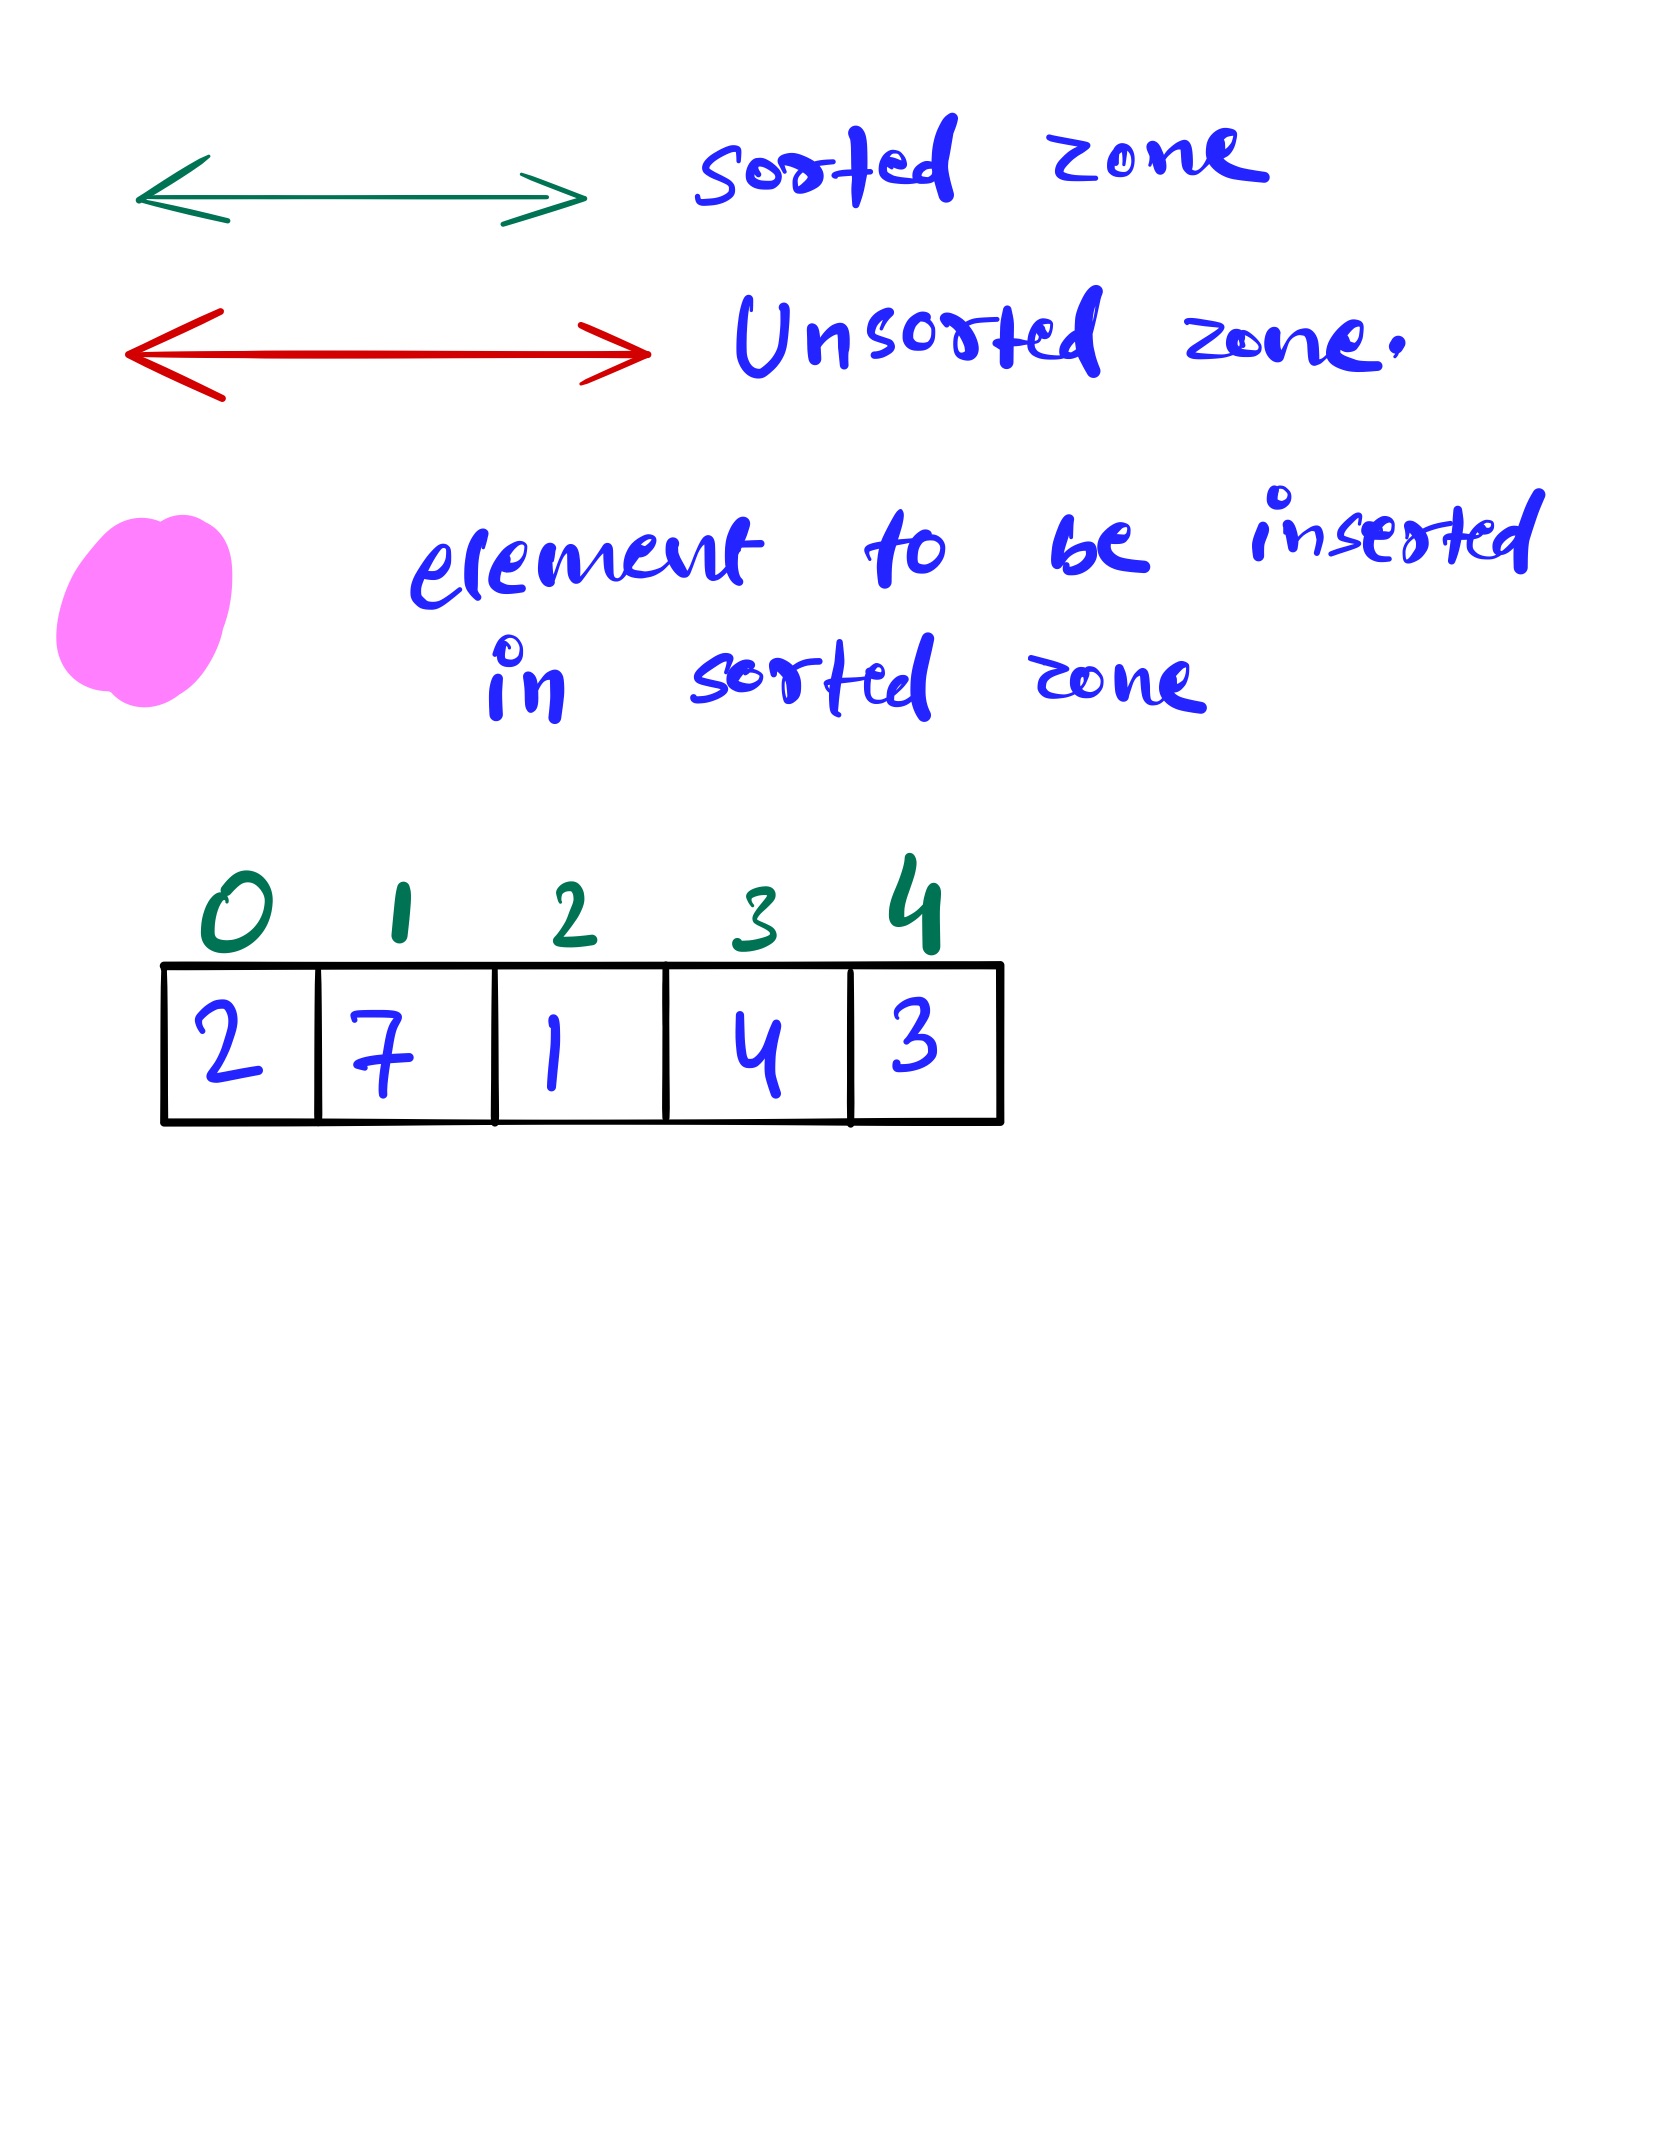 sorted zone
Unsorted zone.
element to be inserted
in sorted zone
0 1 2 3 4
2 7 1 4 3